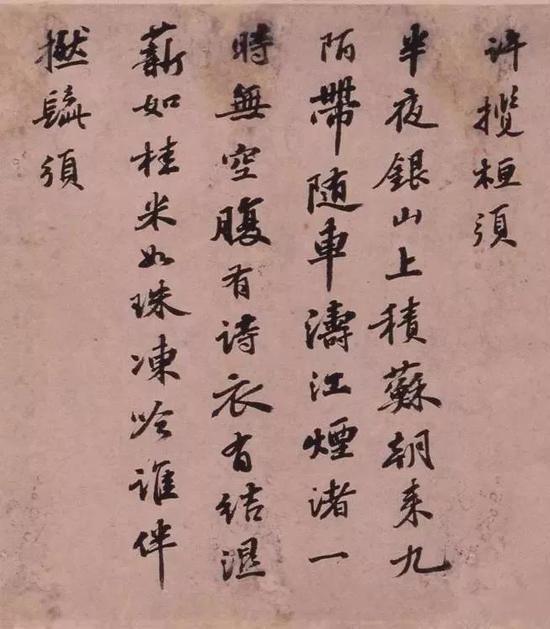 許攬桓須
半夜銀山上積蘇朝来九
陌帶随車濤江煙渚一
時無空腹有詩衣有結濕
薪如桂米如珠凍吟誰伴
撚髭須